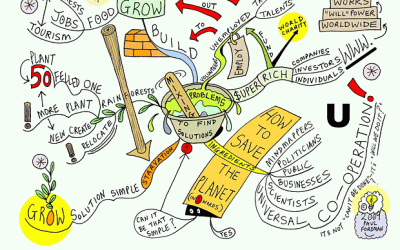 GROW
JOBS
FOOD
TOURISM
BUILD
OUT
TO
UNEMPLOYED
TALENTS
EMPLOY
WORLD
CHARITY
WORKS
"WILL" POWER
WORLDWIDE
WWW.
COMPANIES
INVESTORS
INDIVIDUALS
$UPER RICH
PLANT
50 FELLED ONE
MORE PLANT
RAINFORESTS
NEW CREATE
RELOCATE
MIXING
PROBLEMS
TO FIND
SOLUTIONS
INGREDIENTS
STARVATION
SOLUTION SIMPLE
GROW
CAN IT
BE THAT
SIMPLE?
YES
HOW TO
SAVE
THE
PLANET
MINDMAPPERS
POLITICIANS
PUBLIC
BUSINESSES
SCIENTISTS
UNIVERSAL
CO-OPERATION
U
2009
PAUL
FOREMAN